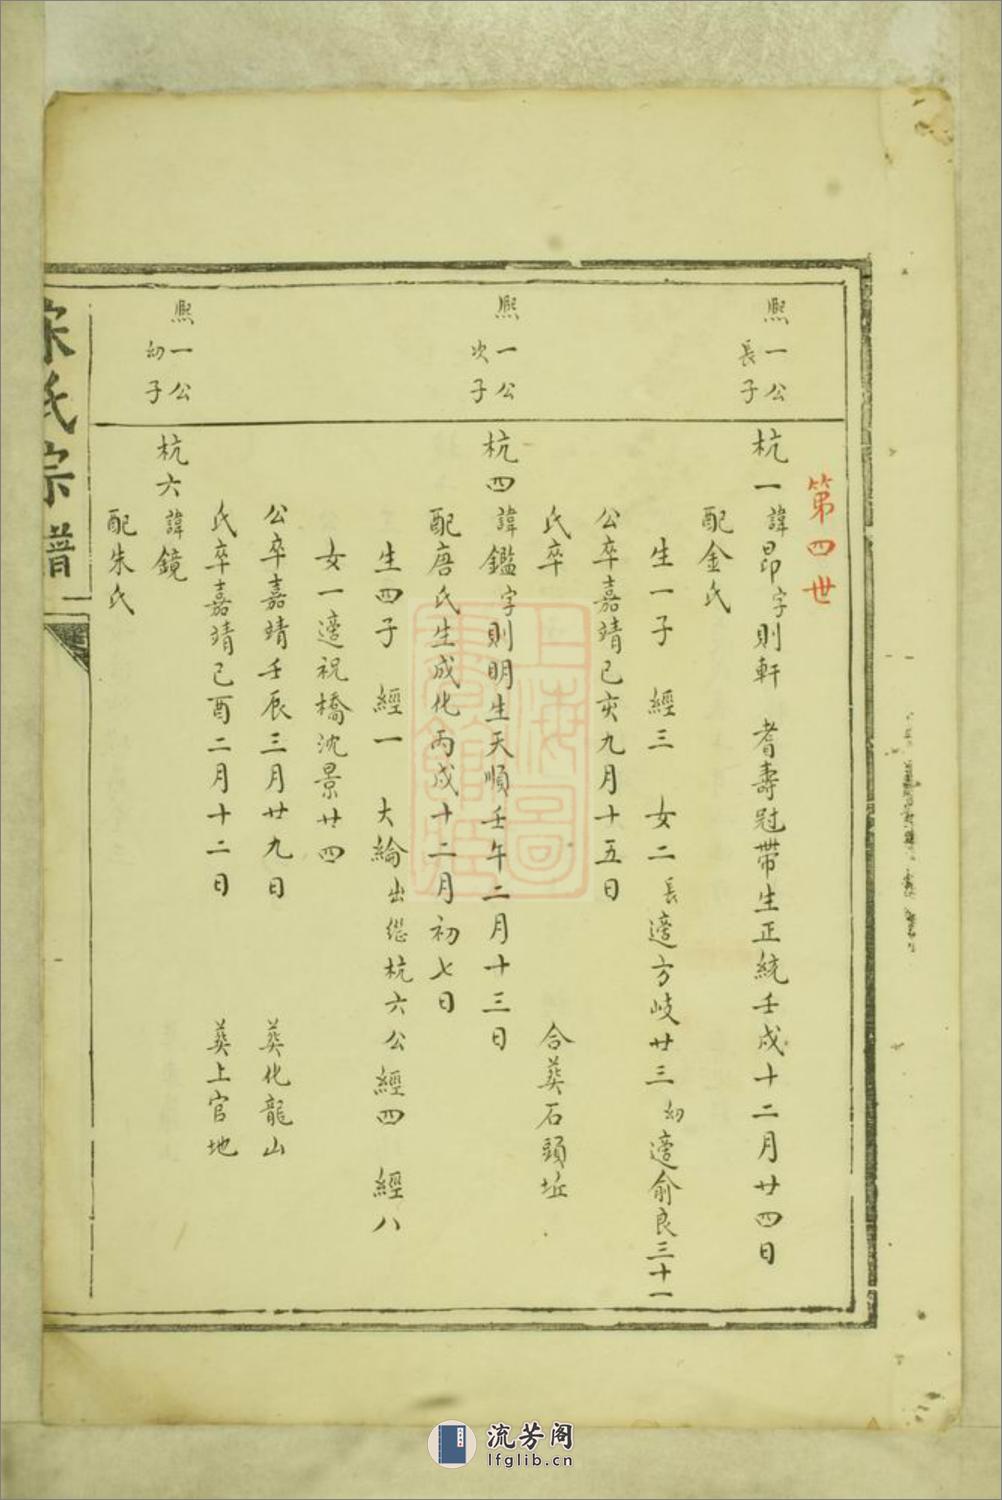 第四世
熙一公
長子
杭一諱昂字則軒 耆壽冠帶生正統壬戌十二月廿四日
配金氏
生一子 經三 女二長適方岐廿三幼適俞良三十一
公卒嘉靖己亥九月十五日
氏卒 合葵石頭坵
熙一公
次子
杭四諱鑑字則明生天順壬午二月十三日
配唐氏生成化丙戌十二月初七日
生四子 經一 大綸出繼杭六公經四 經八
女一適祝橋沈景廿四
公卒嘉靖壬辰三月廿九日 葵化龍山
氏卒嘉靖己酉二月十二日 葵上官地
熙一公
幼子
杭六諱鏡
配朱氏
宋氏宗譜
上海圖書館藏
流芳阁
lfglib.cn